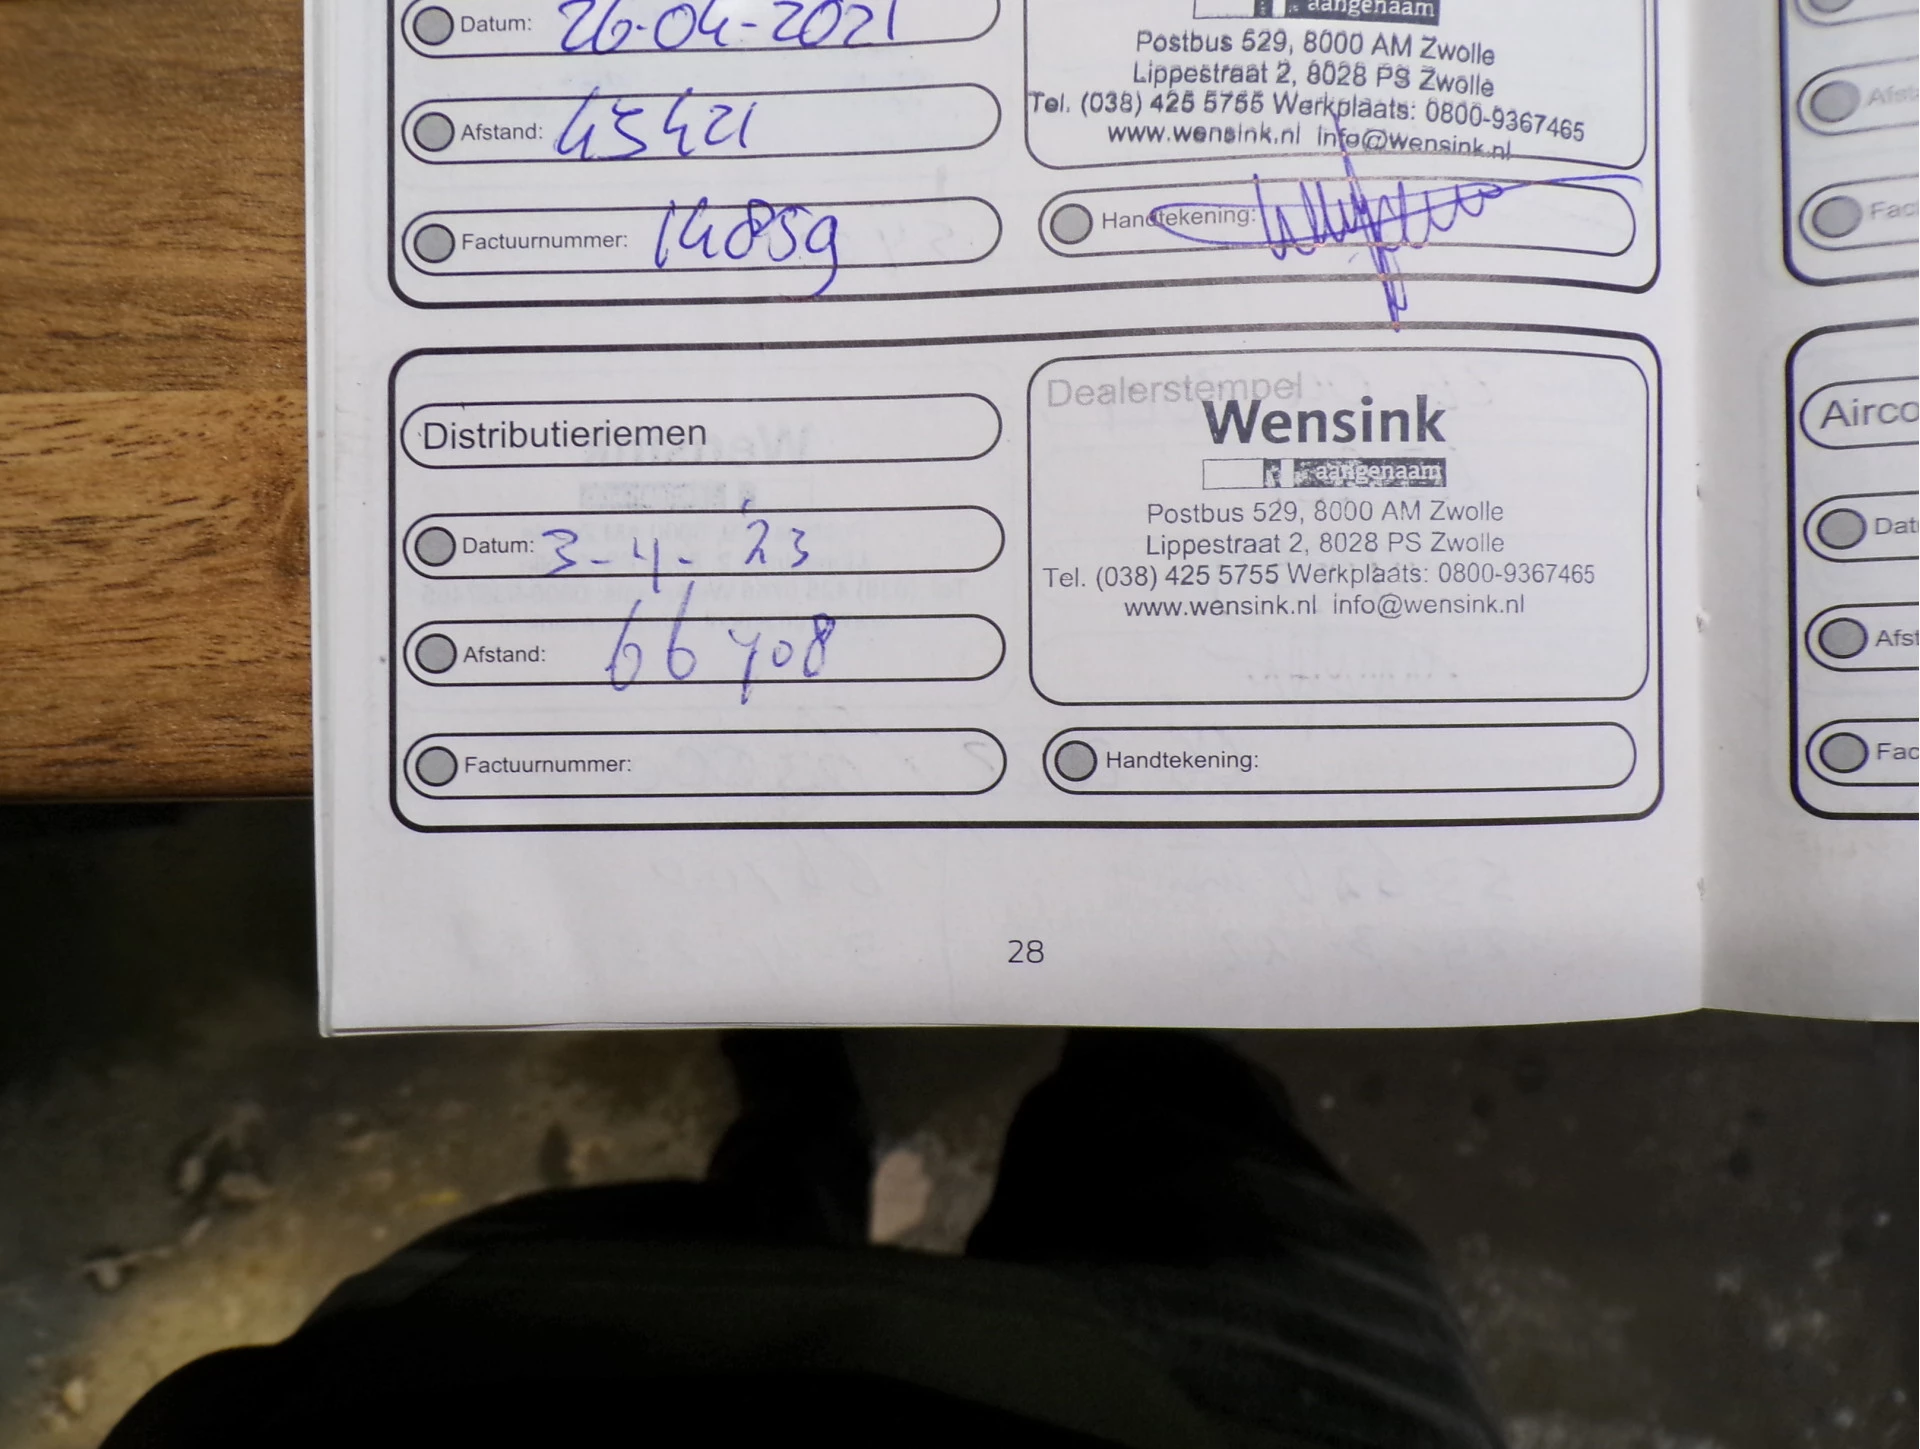 Datum: 26-04-2021
aangenaam
Postbus 529, 8000 AM Zwolle
Lippestraat 2, 8028 PS Zwolle
Tel. (038) 425 5755 Werkplaats: 0800-9367465
www.wensink.nl info@wensink.nl
Afstand: 45421
Factuurnummer: 14859
Handtekening:
Distributieriemen
Dealerstempel
Wensink
aangenaam
Postbus 529, 8000 AM Zwolle
Lippestraat 2, 8028 PS Zwolle
Tel. (038) 425 5755 Werkplaats: 0800-9367465
www.wensink.nl info@wensink.nl
Datum: 3-4-'23
Afstand: 66708
Factuurnummer:
Handtekening:
28
Afst
Fac
Airco
Dat
Afst
Fac